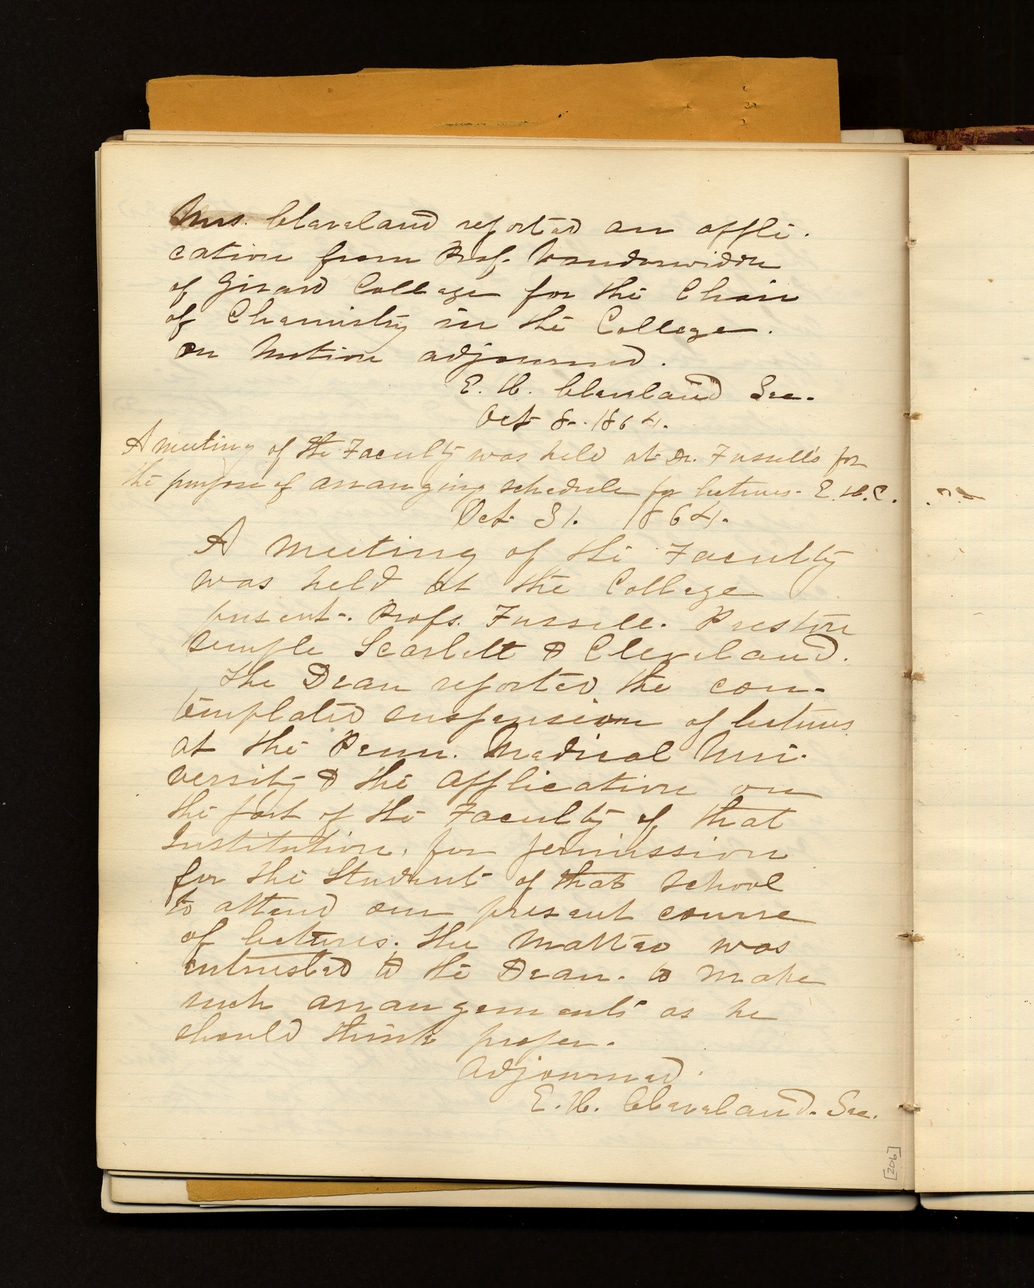 Mrs. Cleveland reported an appli-
cation from Prof. Vanderwidde
of Girard College for the Chair
of Chemistry in the College.
On Motion adjourned.
E. H. Cleveland Sec.
Oct 8. 1864.
A meeting of the Faculty was held at Dr. Fussell's for
the purpose of arranging schedule for lectures. E. H. C.
Oct 31. 1864.
A meeting of the Faculty
was held at the College
present. Profs. Fussell. Preston
Semple Scarlett & Cleveland.
The Dean reported the con-
templated suspension of lectures
at the Penn. Medical Uni-
versity & the application on
the part of the Faculty of that
Institution, for permission
for the Students of that School
to attend our present course
of lectures. The Matter was
entrusted to the Dean. to make
such arrangements as he
should think proper.
Adjourned.
E. H. Cleveland. Sec.
[206]